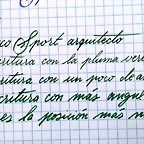 co Sport arquitecto
critura con la pluma vert
critura con un poco de a
critura con más angul
es la posición más n